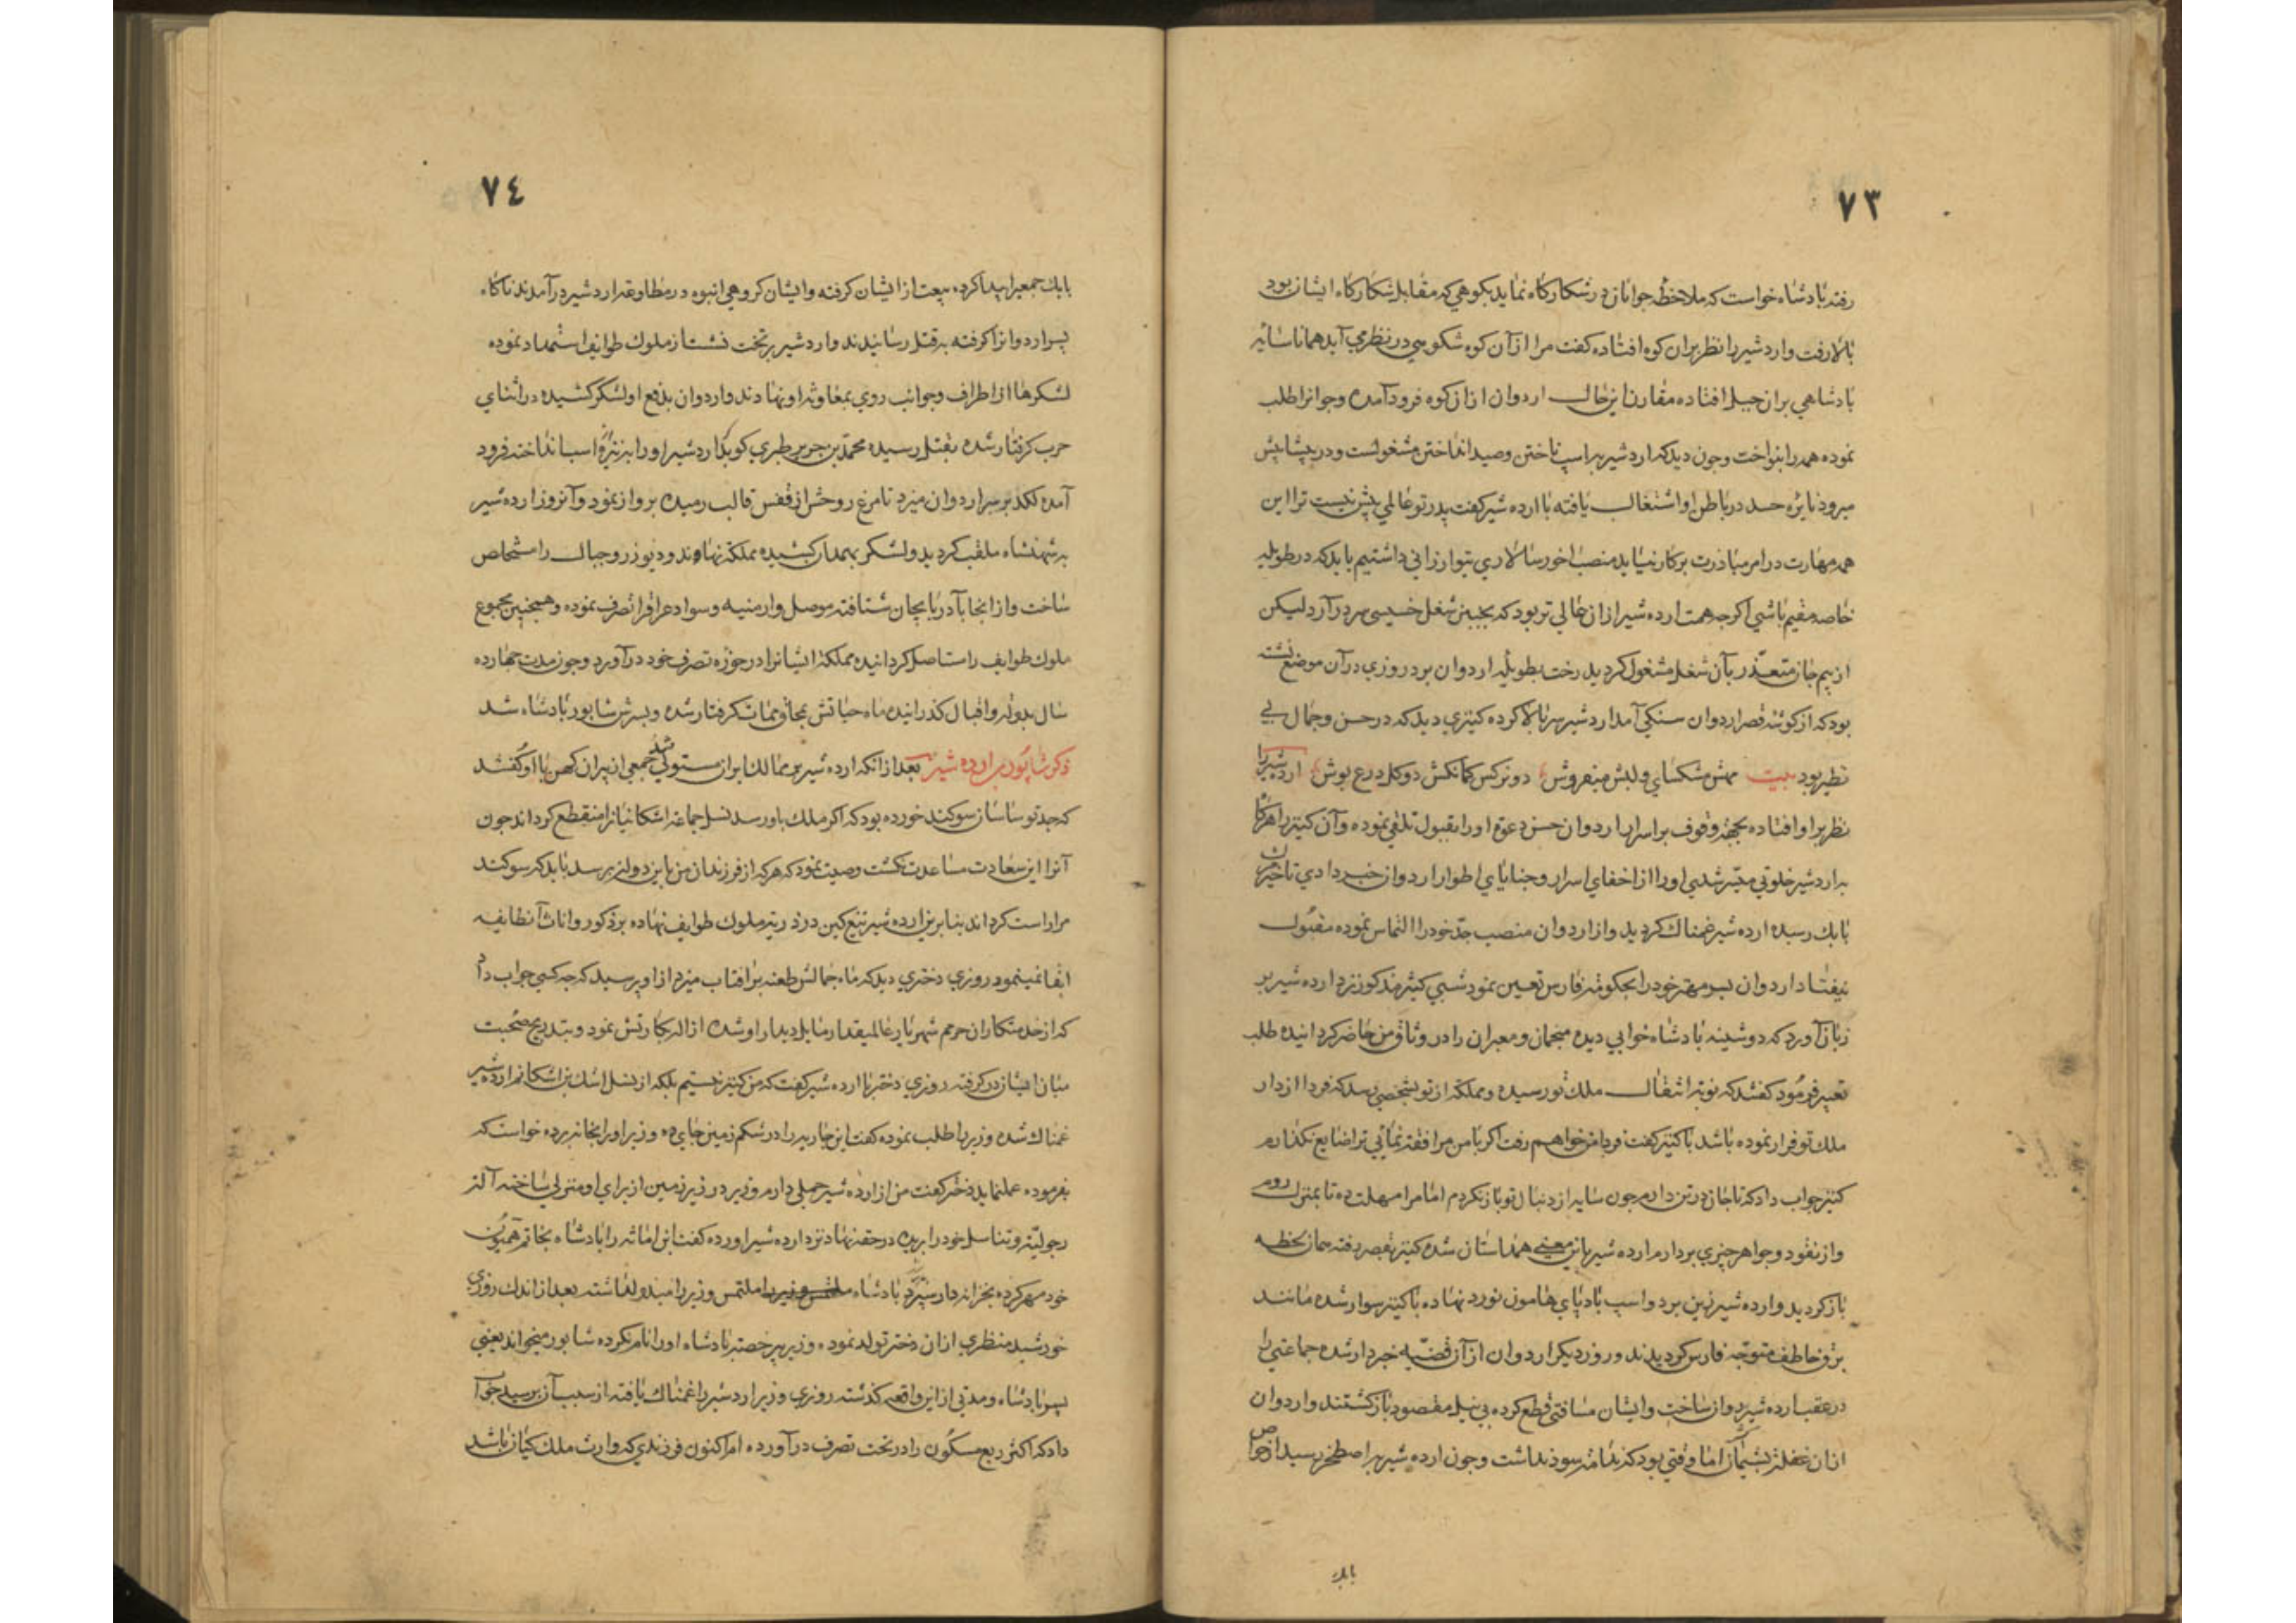 ٧٣
رفته بادشاه خواست که ملاحظهٔ جوانان در شکارکاه نماید بکوهی که مقابل شکارکاه ایشان بود
بالا رفت و اردشیر را نظر بران کوه افتاده کفت مرا از آن کوه شکوهی در نظر می آید همانا سایهٔ
بادشاهی بران جبل افتاده مقارن این حال اردوان ازان کوه فرود آمده و جوانرا طلب
نموده همه را بنواخت و جون دید که اردشیر بر اسب تاختن و صید انداختن مشغولست و در پیشاپیش
میرود نایرهٔ حسد در باطن او اشتغال یافته با ارده شیر کفت پدر تو عاملی بیش نیست ترا این
همه مهارت در امر مبادرت بر کار نیاید منصب اخور سالاری بتو ارزانی داشتیم باید که در طویلهٔ
خاصه مقیم باشی اکرچه همت ارده شیر ازان عالی تر بود که بجنین شغل خسیس سر در آرد لیکن
از بیم جان متعذر بآن شغل مشغول کردید رخت بطویلهٔ اردوان برد روزی در آن موضع نشسته
بود که از کوشهٔ قصر اردوان سنکی آمد اردشیر سر بالا کرده کنیزی دید که در حسن و جمال بی
نظیر بود بیت مهش مشکسای و لبش میفروش دو نرکس کمانکش دو کل درع پوش ارده شیر را
نظر بر او افتاده بجهة وقوف بر اسرار اردوان حسن دعوة او را بقبول تلقی نموده و آن کنیز را هرکاه
با اردشیر خلوتی میسر شدی او را از اخفای اسرار و خبایای اطوار اردوان خبر دادی تا خبر مرک
بابك رسید ارده شیر غمناك کردید و از اردوان منصب جدّ خود را التماس نموده مقبول
نیفتاد اردوان بسر مهتر خود را بحکومة فارس تعیین نمود شبی کنیز مذکور نزد ارده شیر بر
زبان آورد که دوشینه بادشاه خوابی دیده منجمان و معبران را در وثاق من حاضر کردانیده طلب
تعبیر فرمود کفتند که نوبة انتقال ملك تو رسیده و مملکة از تو بشخصی رسد که فردا از دار
ملك تو فرار نموده باشد با کنیز کفت فردا من خواهم رفت اکر با من مرافقة نمائی ترا ضایع نکذارم
کنیز جواب داد که تا جان در تن دارم جون سایه از دنبال تو باز نکردم اما مرا مهلت ده تا بمنزل روم
و از نقود و جواهر جیزی بردارم ارده شیر باین معنی همداستان شده کنیز بقصر رفته همان لحظه
باز کردید و ارده شیر زین بر دو اسب بادپای هامون نورد نهاده با کنیز سوار شده مانند
برق خاطف متوجه فارس کردیدند و روز دیکر اردوان از آن قضیه خبردار شده جماعتی را
در عقب ارده شیر دوان ساخت و ایشان مسافتی قطع کرده بی نیل مقصود بازکشتند و اردوان
ازان غفلة بشیمان اما وقتی بود که ندامة سود نداشت و جون ارده شیر باصطخر رسید از خواص
بابك
٧٤
بابك جمعیرا پیدا کرده بیعت از ایشان کرفته و ایشان کروهی انبوه در مطاوعة اردشیر در آمدند ناکاه
پسر اردوانرا کرفته بقتل رسانیدند و اردشیر بر تخت نشست از ملوك طوایف استمداد نموده
لشکرها از اطراف و جوانب روی بمعاونة او نهادند و اردوان بدفع او لشکر کشیده در اثنای
حرب کرفتار شده بقتل رسیده محمد بن جریر طبری کوید که اردشیر او را بزنیزه از اسب انداخته فرود
آمده لکد بر سر اردوان میزد تا مرغ روحش از قفس قالب رمیده برواز نمود و آنروز ارده شیر
به شهنشاه ملقب کردید و لشکر بهمدان کشیده مملکة نهاوند و دینور و جبال را مستخلص
ساخت و از انجا بآذربایجان شتافته موصل و ارمنیه و سواد عراقرا تصرف نموده و همجنین مجموع
ملوك طوایف را مستاصل کردانیده مملکة ایشانرا در حوزه تصرف خود در آورد و جون مدت جهارده
سال بدولة و اقبال کذرانیده ماه حیاتش بمحاق ممات کرفتار شده و بسرش شابور بادشاه شد
ذکر شاپور بن ارده شیر بعد از انکه ارده شیر بر ممالك ایران مستولی شد جمعی از پیران کهن با او کفتند
که جد تو ساسان سوکند خورده بود که اکر ملك باو رسد نسل جماعه اشکانیانرا منقطع کرداند جون
آنرا این سعادت مساعدت نکشت وصیت نمود که هر که از فرزندان من باین دولة برسد باید که سوکند
مرا راست کرداند بنا برین ارده شیر تیغ کین در ذریة ملوك طوایف نهاده بر ذکور و اناث آنطایفه
ابقا نمینمود روزی دختری دید که ماه جمالش طعنه بر افتاب میزد از او پرسید که جه کسی جواب داد
که از خدمتکاران حرم شهریار عالمیقدار مایل دیدار او شده ازاله بکارتش نمود و بتدریج صحبت
میان ایشان در کرفته روزی دختر با ارده شیر کفت که من کنیز نیستم بلکه از نسل اشك بن اشکانم ارده شیر
غمناك شده وزیر را طلب نموده کفت این جاریه را در شکم زمین جای ده وزیر او را بخانه برده خواست که
بفرموده عمل نماید دختر کفت من از ارده شیر حملی دارم وزیر در زیر زمین از برای او منزلی ساخته آلة
رجولیة و تناسل خود را بریده در حقه نهاد نزد ارده شیر اورده کفت این امانة را بادشاه بخاتم همیون
خود مهر کرده بخزانه دار سپرد بادشاه ملتمس وزیر را ملتمس وزیر را مبذول داشته بعد از اندك روزی
خورشید منظری ازان دختر تولد نموده وزیر بی رخصة بادشاه او را نام نکرده شابور میخواند یعنی
پسر بادشاه و مدتی از این واقعه کذشته روزی وزیر اردشیر را غمناك یافته از سبب آن برسید جواب
داد که اکثر ربع مسکون را در تحت تصرف در آورده ام اکنون فرزندی که وارث ملك کیان باشد